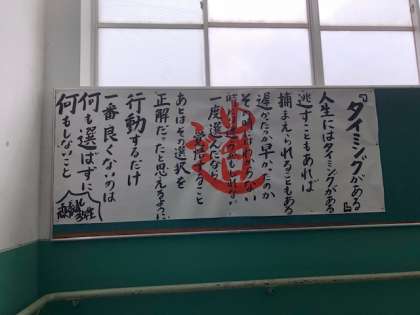 『タイミングがある』
人生にはタイミングがある
逃すこともあれば
捕まえられることもある
遅かったか早かったのか
一度選んだなら
覚悟
すること
あとはその選択を
正解だったと思えるように
行動するだけ
一番良くないのは
何も選ばずに
何もしないこと
選